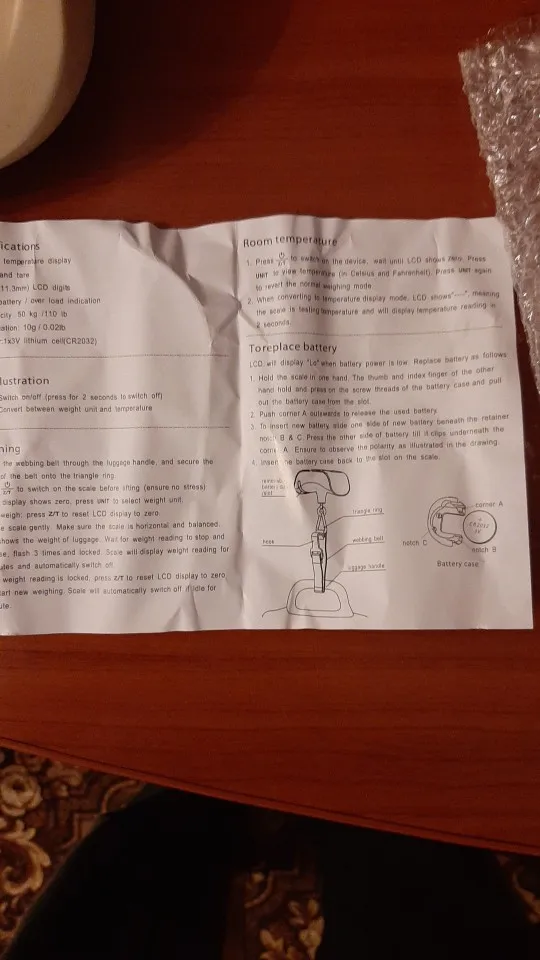 ications
temperature display
and tare
11.3mm) LCD digits
battery / over load indication
city: 50 kg /110 lb
ation: 10g / 0.02lb
:1x3V lithium cell(CR2032)
lustration
Switch on/off (press for 2 seconds to switch off)
Convert between weight unit and temperature
hing
the webbing belt through the luggage handle, and secure the
of the belt onto the triangle ring.
Z/T to switch on the scale before lifting (ensure no stress)
display shows zero, press UNIT to select weight unit.
weigh: press Z/T to reset LCD display to zero.
e scale gently. Make sure the scale is horizontal and balanced.
shows the weight of luggage. Wait for weight reading to stop and
se, flash 3 times and locked. Scale will display weight reading for
utes and automatically switch off.
weight reading is locked, press Z/T to reset LCD display to zero
art new weighing. Scale will automatically switch off if idle for
ute.
Room temperature
1. Press Z/T to switch on the device, wait until LCD shows zero. Press
UNIT to view temperature (in Celsius and Fahrenheit). Press UNIT again
to revert the normal weighing mode
2. When converting to temperature display mode, LCD shows"----", meaning
the scale is testing temperature and will display temperature reading in
2 seconds.
Toreplace battery
LCD will display "Lo"when battery power is low. Replace battery as follows
1. Hold the scale in one hand. The thumb and index finger of the other
hand hold and press on the screw threads of the battery case and pull
out the battery case from the slot.
2. Push corner A outwards to release the used battery.
3. To insert new battery slide one side of new battery beneath the retainer
notch B & C. Press the other side of battery till it clips underneath the
corner A. Ensure to observe the polarity as illustrated in the drawing.
4. Insert the battery case back to the slot on the scale.
triangle ring
hook
webbing belt
luggage handle
corner A
+
CR2032
3V
notch C
notch B
Battery case